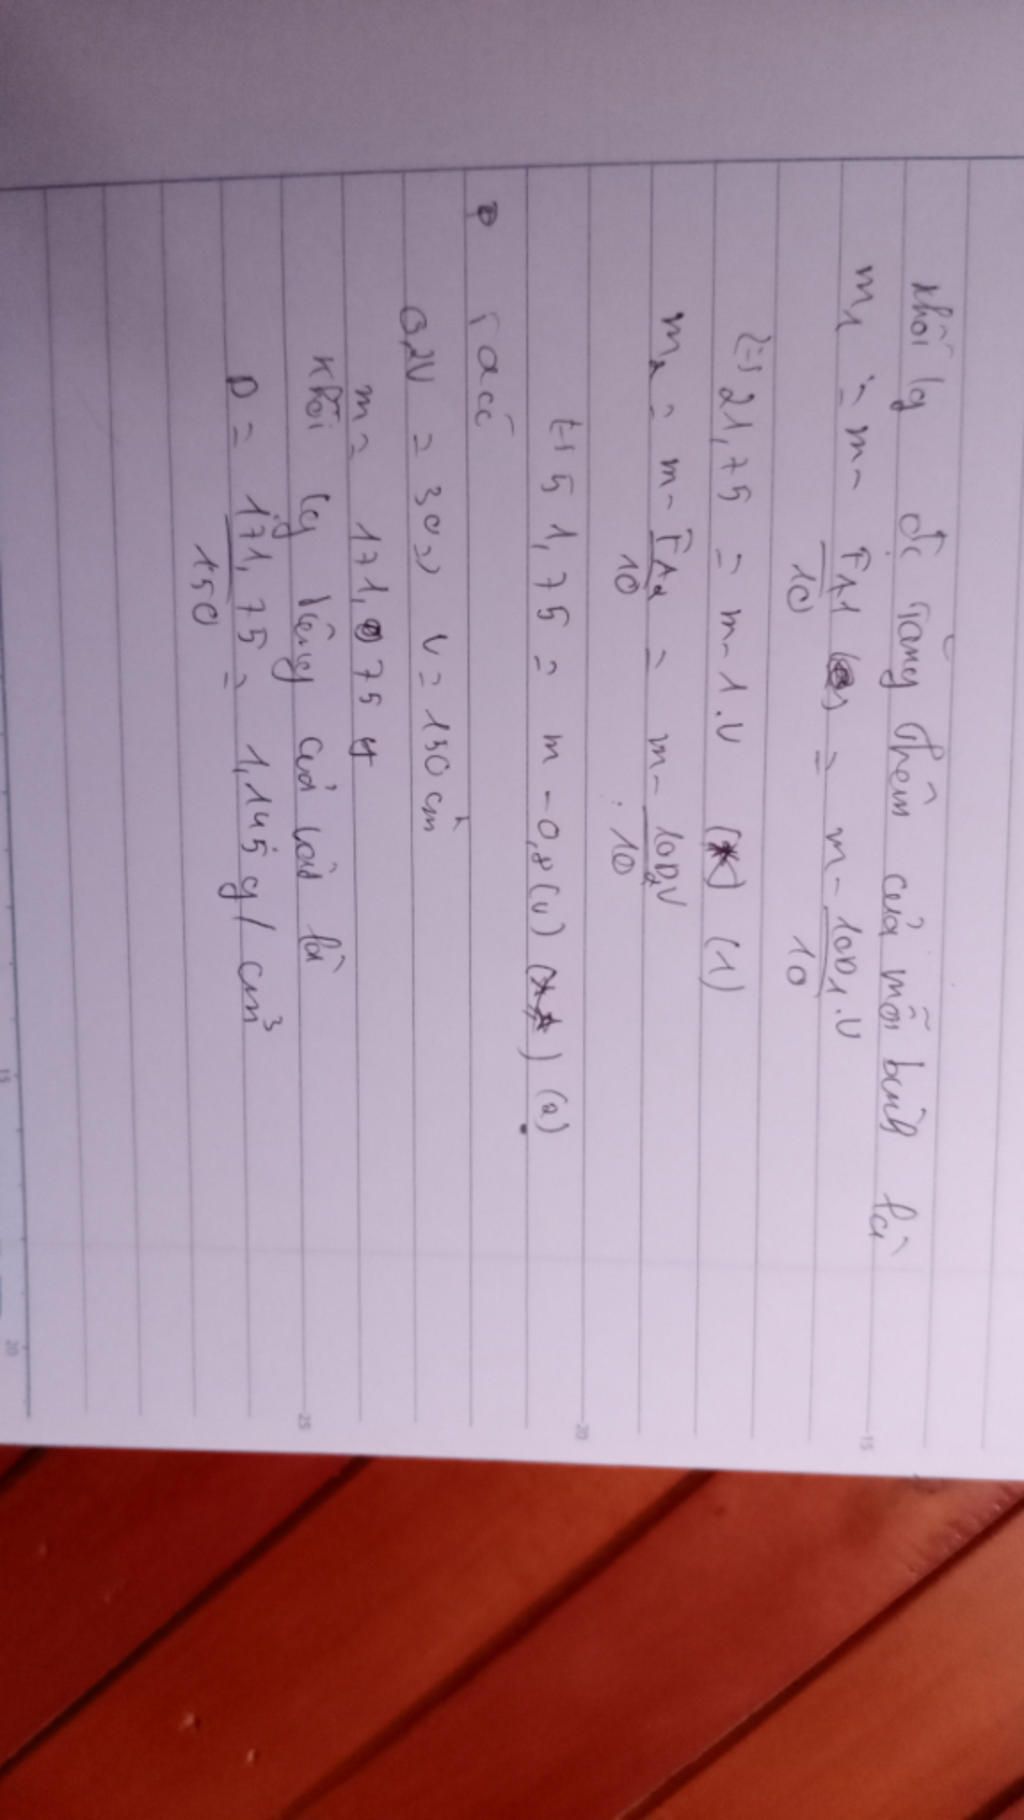 khối lg đc tăng thêm của mỗi bình là
m1 = m - FA1/10 = m - 10D1.V/10
<=> 21,75 = m - 1.V (*) (1)
m2 = m - FA2/10 = m - 10D2V/10
<=> 51,75 = m - 0,8(V) (**) (2)
Ta có
0,2V = 30 => V = 150 cm
m = 171,75 g
khối lg riêng của vật là
D = 171,75/150 = 1,145 g/cm³
15
20
25
15
20